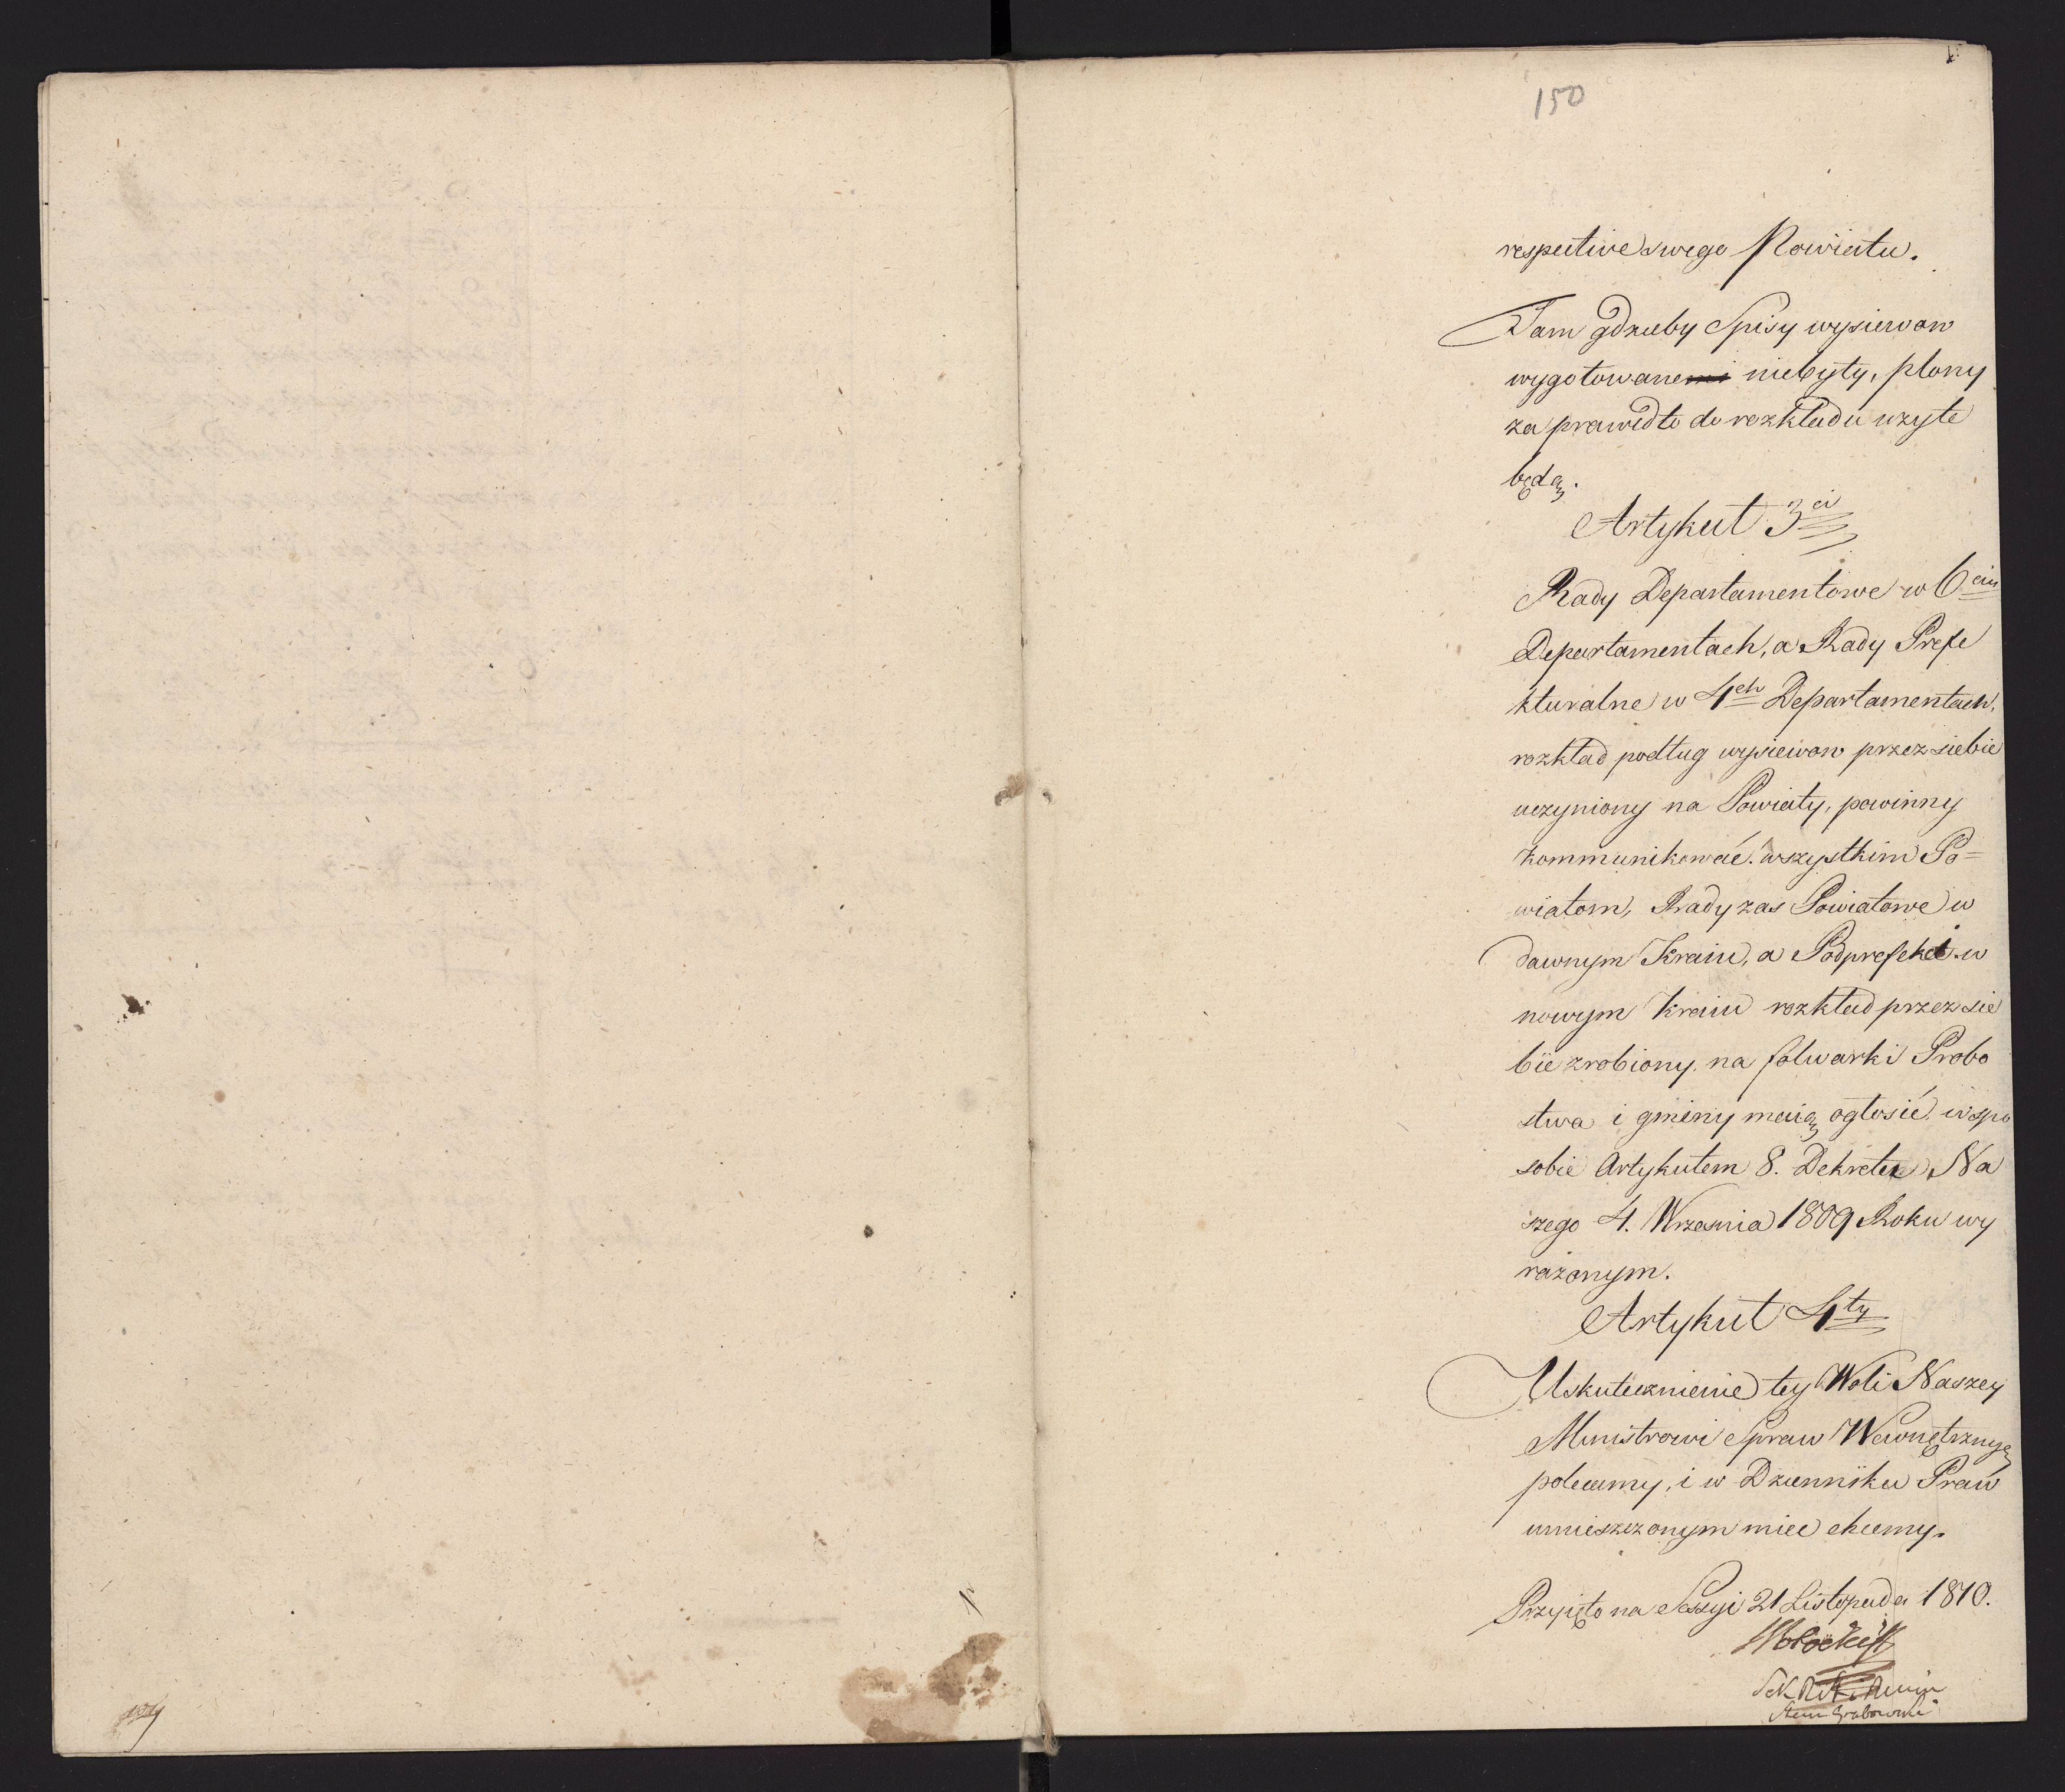 150
respective swego Powiatu.
Tam gdzieby Spisy wysiewow
wygotowanemi niebyły, plony
za prawidło do rozkładu użyte
będą.
Artykuł 3ci
Rady Departamentowe w 6ciu
Departamentach, a Rady Prefe
kturalne w 4ch Departamentach,
rozkład podług wysiewow przez siebie
uczyniony na Powiaty, powinny
kommunikować wszystkim Po=
wiatom, Rady zas Powiatowe w
dawnym Kraiu, a Podprefekci w
nowym Kraiu rozkład przez sie
bie zrobiony na folwarki Probo
stwa i gminy maią ogłosić w spo
sobie Artykułem 8. Dekretu Na
szego 4. Wrzesnia 1809 Roku wy
rażonym.
Artykuł 4ty
Uskutecznienie tey Woli Naszey
Ministrowi Spraw Wewnętrznych
polecamy, i w Dzienniku Praw
umieszczonym mieć chcemy.
Przyięto na Sessyi 21 Listopada 1810.
Grabowski